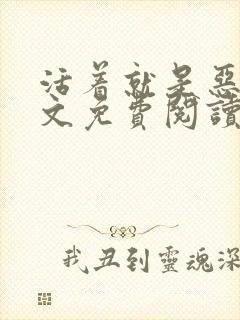 活着就是惡
文免費閱讀
我丑到靈魂深